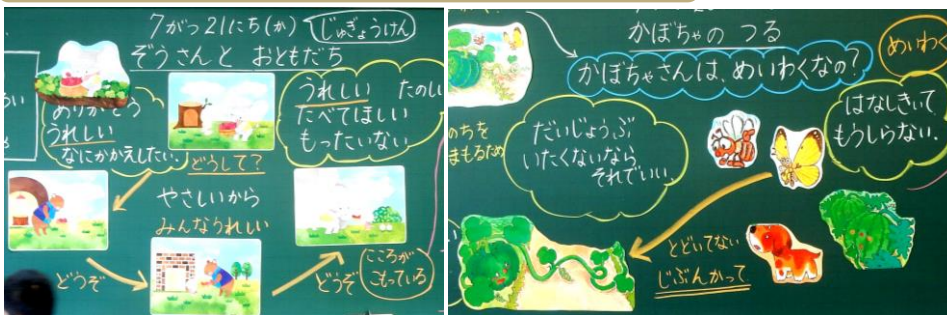 7がつ21にち(か)
じゅぎょうけん
ぞうさんと おともだち
ありがとう
うれしい
なにかかえしたい。
どうして?
やさしいから
みんなうれしい
うれしい たのしい
たべてほしい
もったいない
どうぞ
どうぞ
こころが
こもっている
かぼちゃの つる
かぼちゃさんは、めいわくなの?
めいわく
のちを
まもるため
だいじょうぶ
いたくないなら、
それでいい。
はなしきいて
もうしらない。
とどいてない
じぶんかって